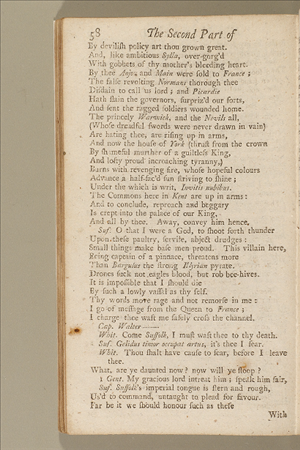 58 The Second Part of
By devilish policy art thou grown great.
And, like ambitious Sylla, over-gorg'd
With gobbets of thy mother's bleeding heart.
By thee Anjou and Main were sold to France;
The false revolting Normans thorough thee
Disdain to call us lord; and Picardie
Hath slain the governors, surpriz'd our forts,
And sent the ragged soldiers wounded home.
The princely Warwick, and the Nevils all,
(Whose dreadful swords were never drawn in vain)
Are hating thee, are rising up in arms,
And now the house of York (thrust from the crown
By shameful murther of a guiltless King,
And lofty proud incroaching tyranny,)
Burns with revenging fire, whose hopeful colours
Advance a half-fac'd sun striving to shine;
Under the which is writ, Invitis nubibus.
The Commons here in Kent are up in arms:
And to conclude, reproach and beggary
Is crept into the palace of our King,
And all by thee. Away, convey him hence.
Suf. O that I were a God, to shoot forth thunder
Upon these paultry, servile, abject drudges:
Small things make base men proud. This villain here,
Being captain of a pinnace, threatens more
Than Bargulus the strong Illyrian pyrate.
Drones suck not eagles blood, but rob bee-hives.
It is impossible that I should die
By such a lowly vassal as thy self.
Thy words move rage and not remorse in me:
I go of message from the Queen to France;
I charge thee waft me safely cross the channel.
Cap. Walter ——
Whit. Come Suffolk, I must waft thee to thy death.
Suf. Gelidus timor occupat artus, it's thee I fear.
Whit. Thou shalt have cause to fear, before I leave
thee.
What, are ye daunted now? now will ye stoop?
1 Gent. My gracious lord intreat him; speak him fair,
Suf. Suffolk's imperial tongue is stern and rough,
Us'd to command, untaught to plead for favour.
Far be it we should honour such as these
With